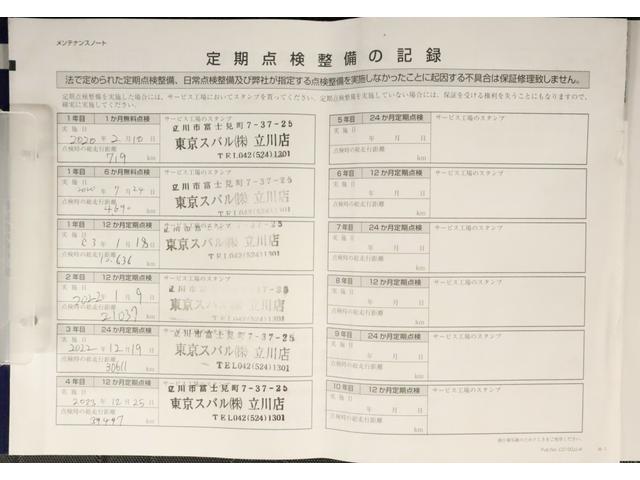 メンテナンスノート
定期点検整備の記録
法で定められた定期点検整備、日常点検整備及び弊社が指定する点検整備を実施しなかったことに起因する不具合は保証修理致しません。
定期点検整備を実施した場合には、サービス工場においてスタンプを貰ってください。定期点検整備を実施していない場合には、保証を受ける権利を失うことにもなりますので、
確実に実施してください。
1年目 1か月無料点検 サービス工場のスタンプ
実施日 2020年2月10日
点検時の総走行距離
719 km
立川市富士見町7-37-25
東京スバル㈱ 立川店
TEL042(524)1301
1年目 6か月無料点検 サービス工場のスタンプ
実施日 2020年7月24日
点検時の総走行距離
4690 km
立川市富士見町7-37-25
東京スバル㈱ 立川店
TEL042(524)1301
1年目 12か月定期点検 サービス工場のスタンプ
実施日 R3年1月18日
点検時の総走行距離
12,636 km
東京スバル㈱ 立川店
TEL042(524)1301
2年目 12か月定期点検 サービス工場のスタンプ
実施日 2022年1月9日
点検時の総走行距離
21037 km
立川市富士見町7-37-25
東京スバル㈱ 立川店
TEL042(524)1301
3年目 24か月定期点検 サービス工場のスタンプ
実施日 2022年12月19日
点検時の総走行距離
30611 km
立川市富士見町7-37-25
東京スバル㈱ 立川店
TEL042(524)1301
4年目 12か月定期点検 サービス工場のスタンプ
実施日 2023年12月25日
点検時の総走行距離
39497 km
立川市富士見町7-37-25
東京スバル㈱ 立川店
TEL042(524)1301
5年目 24か月定期点検 サービス工場のスタンプ
実施日 年 月 日
点検時の総走行距離
km
6年目 12か月定期点検 サービス工場のスタンプ
実施日 年 月 日
点検時の総走行距離
km
7年目 24か月定期点検 サービス工場のスタンプ
実施日 年 月 日
点検時の総走行距離
km
8年目 12か月定期点検 サービス工場のスタンプ
実施日 年 月 日
点検時の総走行距離
km
9年目 24か月定期点検 サービス工場のスタンプ
実施日 年 月 日
点検時の総走行距離
km
10年目 12か月定期点検 サービス工場のスタンプ
実施日 年 月 日
点検時の総走行距離
km